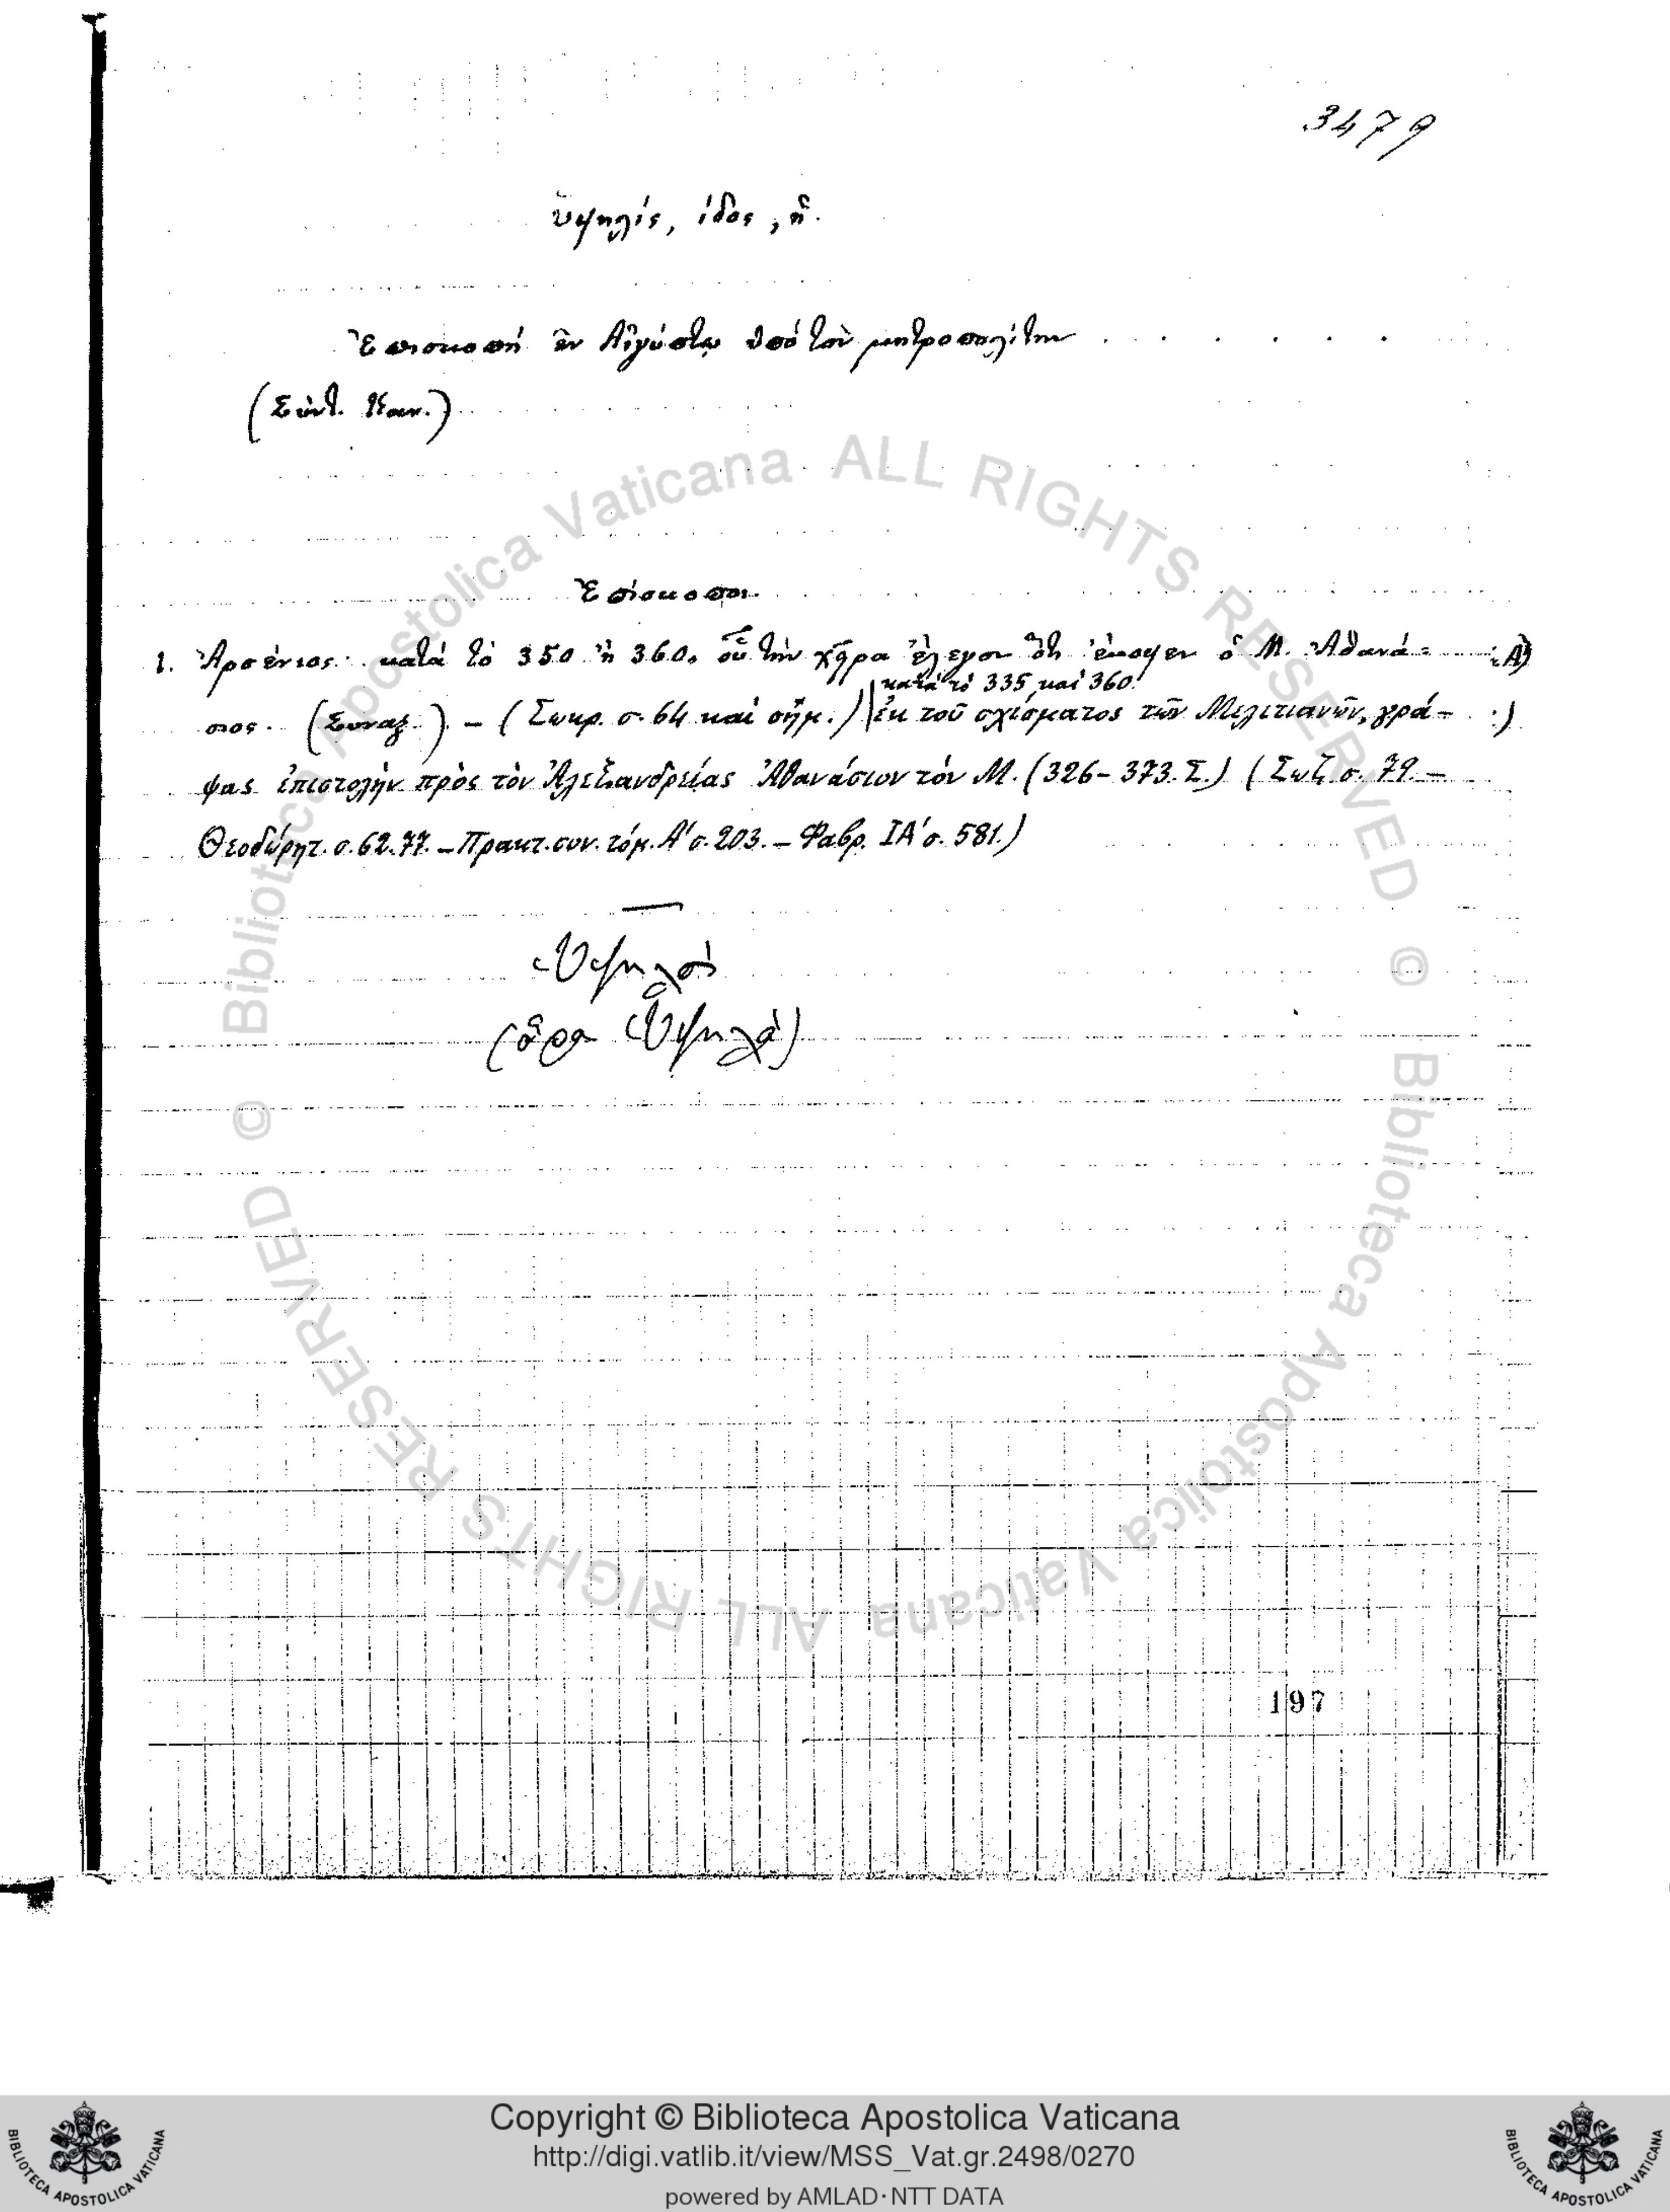 3479
Ὑψηλίς, ίδος, ἡ.
Ἐπισκοπὴ ἐν Αἰγύπτῳ ὑπὸ τὸν μητροπολίτην . . . . . . .
(Σύντ. Καν.)
Ἐπίσκοποι
1. Ἀρσένιος κατὰ τὸ 350 ἢ 360. οὗ τὴν χεῖρα ἔλεγον ὅτι ἔκοψεν ὁ Μ. Ἀθανά= :Α)
κατὰ τὸ 335 καὶ 360.
σιος. (Συναξ.) – (Σωκρ. σ. 64 καὶ σημ.) ἐκ τοῦ σχίσματος τῶν Μελιτιανῶν, γρά- :)
ψας ἐπιστολὴν πρὸς τὸν Ἀλεξανδρείας Ἀθανάσιον τὸν Μ. (326-373. Σ.) (Σωζ. σ. 79. –
Θεοδώρητ. σ. 62. 77. – Πρακτ. συν. τόμ. Α' σ. 203. – Φαβρ. ΙΑ' σ. 581.)
Ὑψηλοὶ
(ὅρα Ὑψηλὰ)
197
© Biblioteca Apostolica Vaticana ALL RIGHTS RESERVED
© Biblioteca Apostolica Vaticana ALL RIGHTS RESERVED
BIBLIOTECA APOSTOLICA VATICANA
Copyright © Biblioteca Apostolica Vaticana
http://digi.vatlib.it/view/MSS_Vat.gr.2498/0270
powered by AMLAD·NTT DATA
BIBLIOTECA APOSTOLICA VATICANA